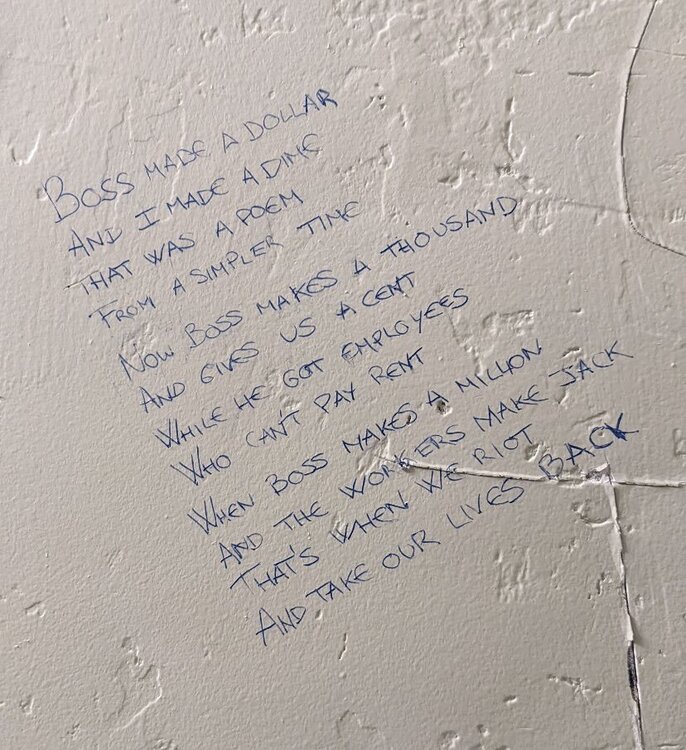 BOSS MADE A DOLLAR
AND I MADE A DIME
THAT WAS A POEM
FROM A SIMPLER TIME
NOW BOSS MAKES A THOUSAND
AND GIVES US A CENT
WHILE HE GOT EMPLOYEES
WHO CAN'T PAY RENT
WHEN BOSS MAKES A MILLION
AND THE WORKERS MAKE JACK
THAT'S WHEN WE RIOT
AND TAKE OUR LIVES BACK